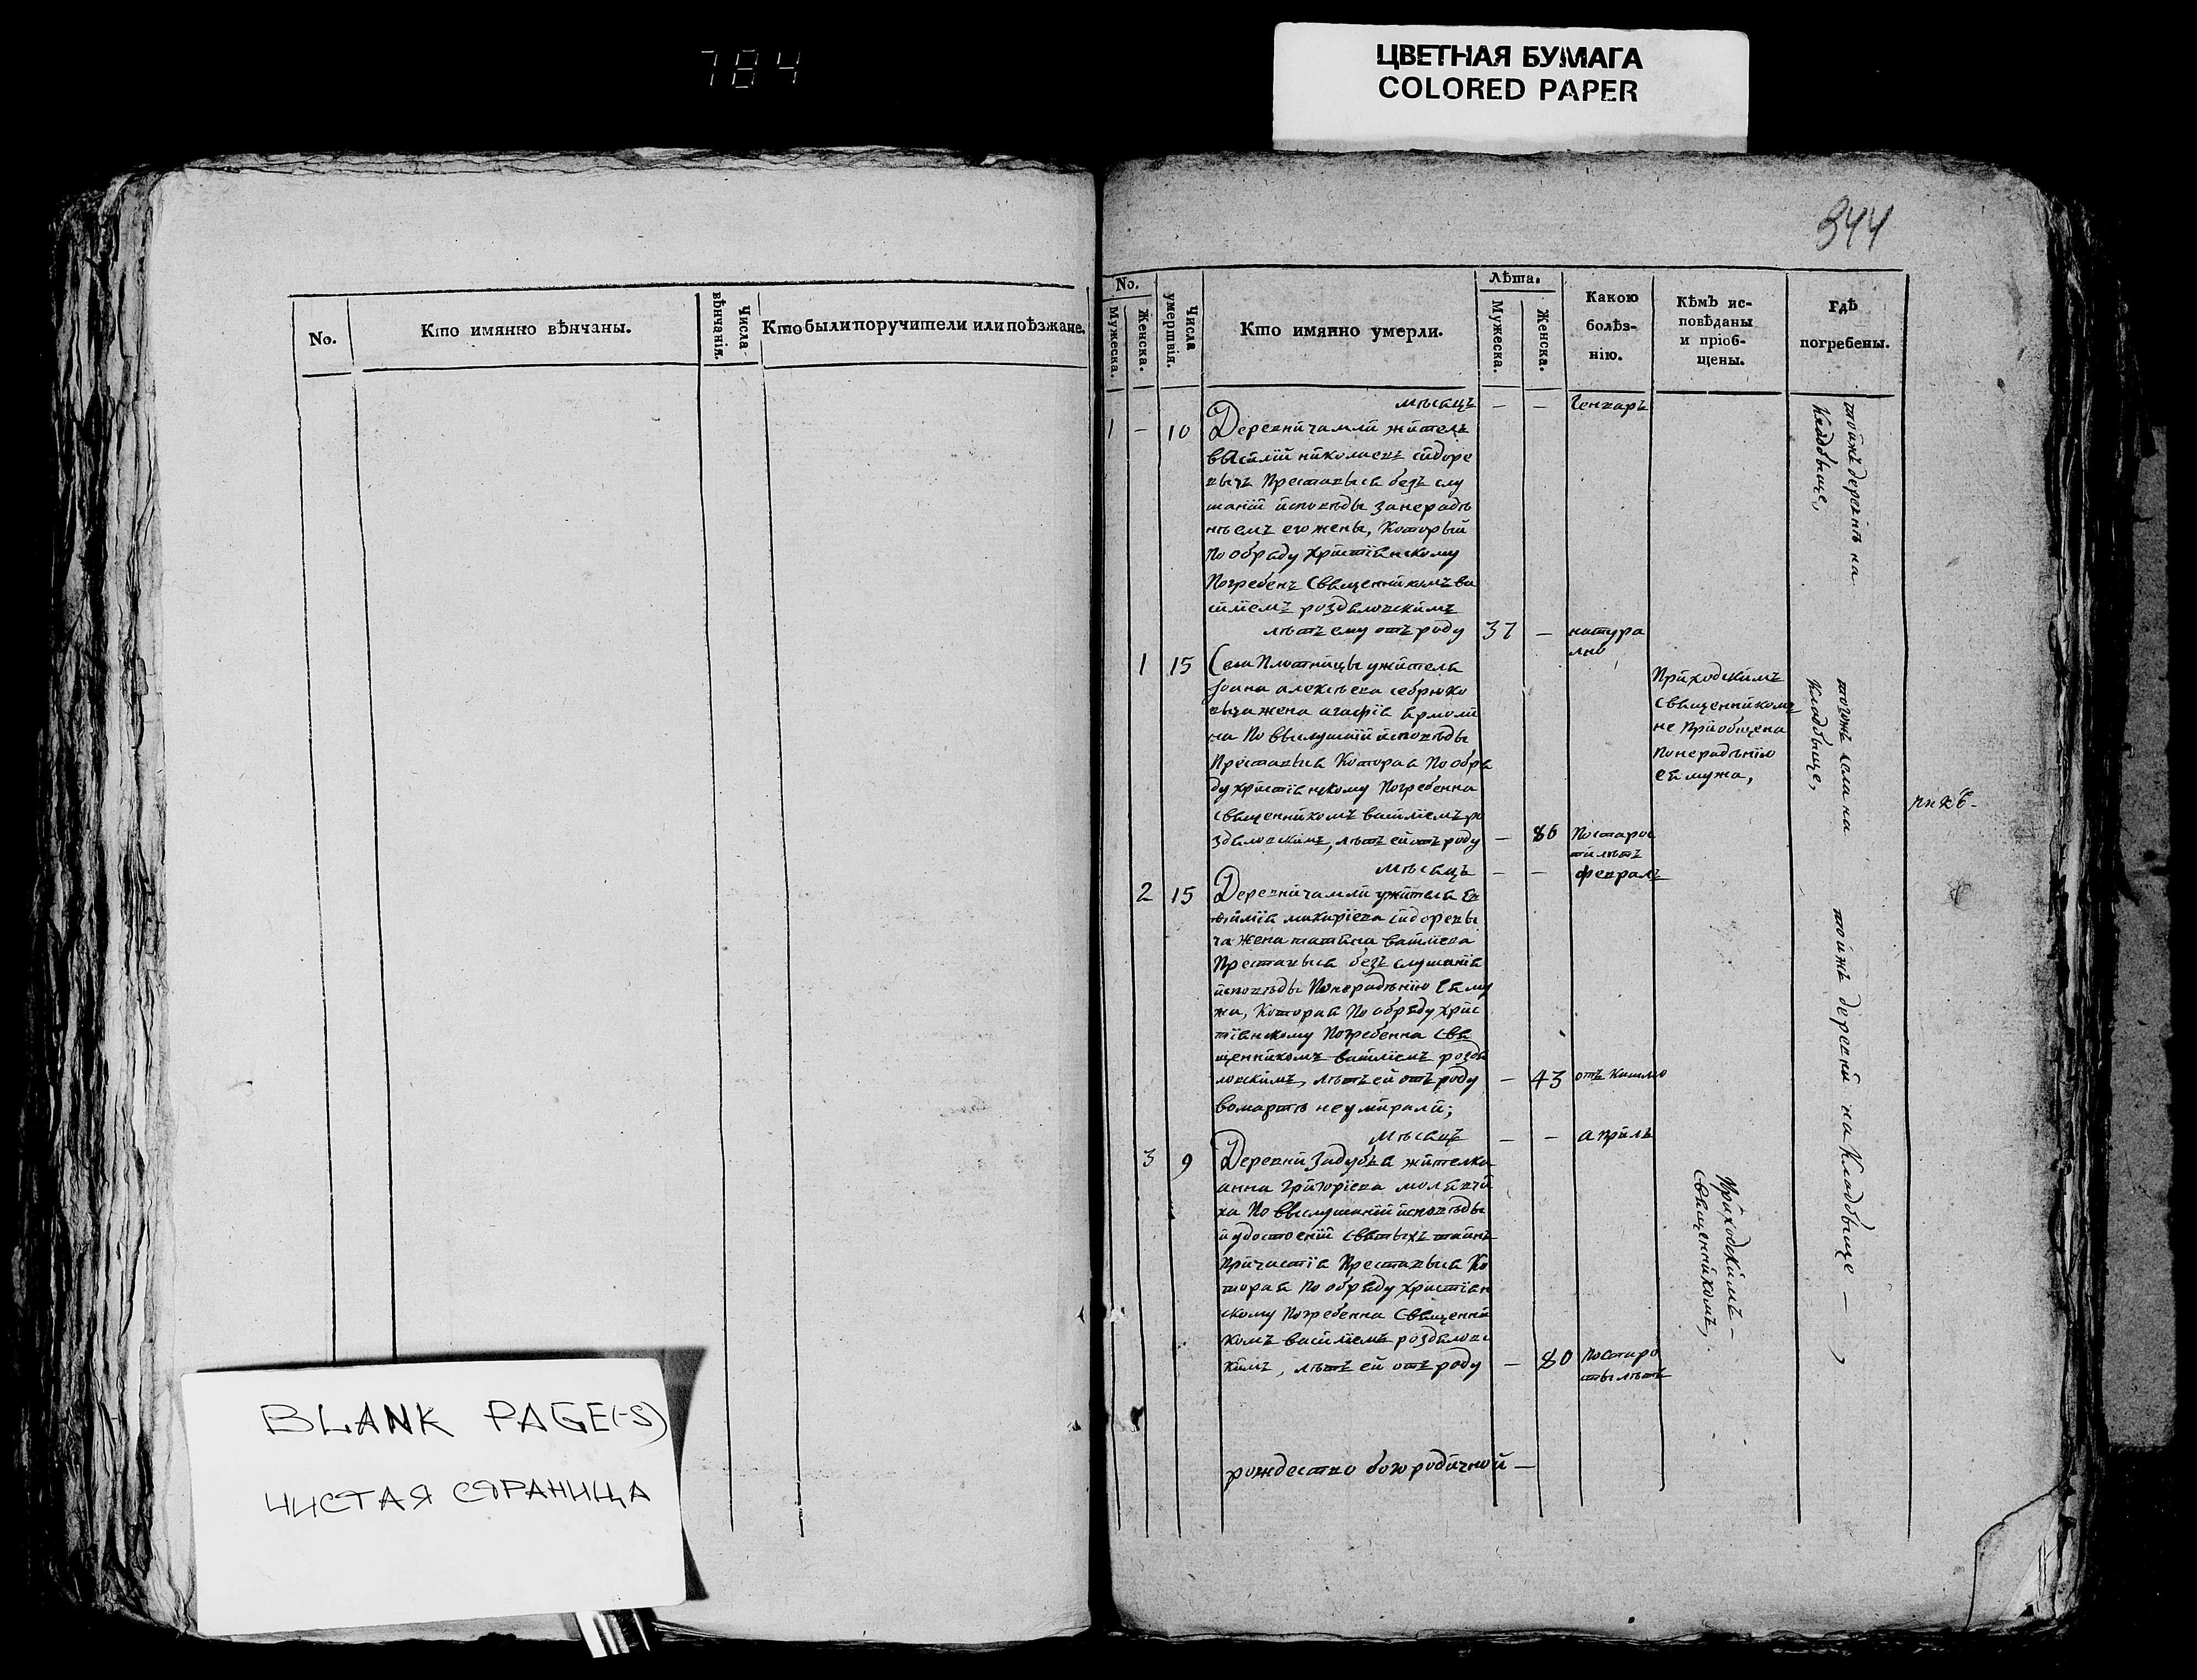 784
ЦВЕТНАЯ БУМАГА
COLORED PAPER
No.
Кто имянно вѣнчаны.
Числа вѣнчанія.
Кто были поручители или поѣзжане.
BLANK PAGE(-S)
ЧИСТАЯ СТРАНИЦА
344
No.
Мужеска.
Женска.
Числа умертвія.
Кто имянно умерли.
Лѣта.
Мужеска.
Женска.
Какою
болѣз-
нію.
Кѣмъ ис-
повѣданы
и пріоб-
щены.
Гдѣ
погребены.
мѣсяцъ — — Генваръ
1 — 10 Деревни чамли житель
василій николаевъ сидоре
вичъ Преставися безъ слу
шанїй исповѣды за нерадѣ
нїемъ его жены, Который
по обряду христїянскому
Погребенъ Священникомъ ва
силїемъ роздяловскимъ
лѣтъ ему отъ роду 37 — натура
лно
тойжъ деревнѣ на
кладбыще,
1 15 Села Плотницы ужителя
Іоана алексѣева себрюко
вича жена агафїя ярмоли
на По выслушанїй исповѣды
Преставися Которая По обря
ду христїянскому Погребенна
священникомъ василїемъ ро
здяловскимъ, лѣтъ ей отъ роду — 86 По старос
ти лѣтъ
Приходскимъ
священникомъ
не Приобщена
По нерадѣнїю
ея мужа,
тогожъ села на
кладбыще,
мѣсяцъ — — февралъ
2 15 Деревни чамли ужителя Ев
фимїя макарїева сидоревы
ча жена татяна василїева
Преставися безъ слушанїя
исповѣды По нерадѣнїю Ея му
жа, Которая По обряду хрис
тїянскому Погребенна свя
щенникомъ василїемъ роздя
ловскимъ, лѣтъ ей отъ роду — 43 отъ Кашлю
тойжъ деревни на кладбыще —,
вомартѣ неумирали;
мѣсяцъ — — априль
3 9 Деревни Задубья жителка
анна григорїева
ха По выслушанїй исповѣды
и удостоенїй святыхъ таинъ
Причастїя Преставися Ко
торая По обряду христїян
скому Погребенна Священни
комъ василїемъ роздяловс
кимъ, лѣтъ ей отъ роду — 80 По старо
сты лѣтъ
Приходскимъ —
священникомъ,
рождество богородичной —